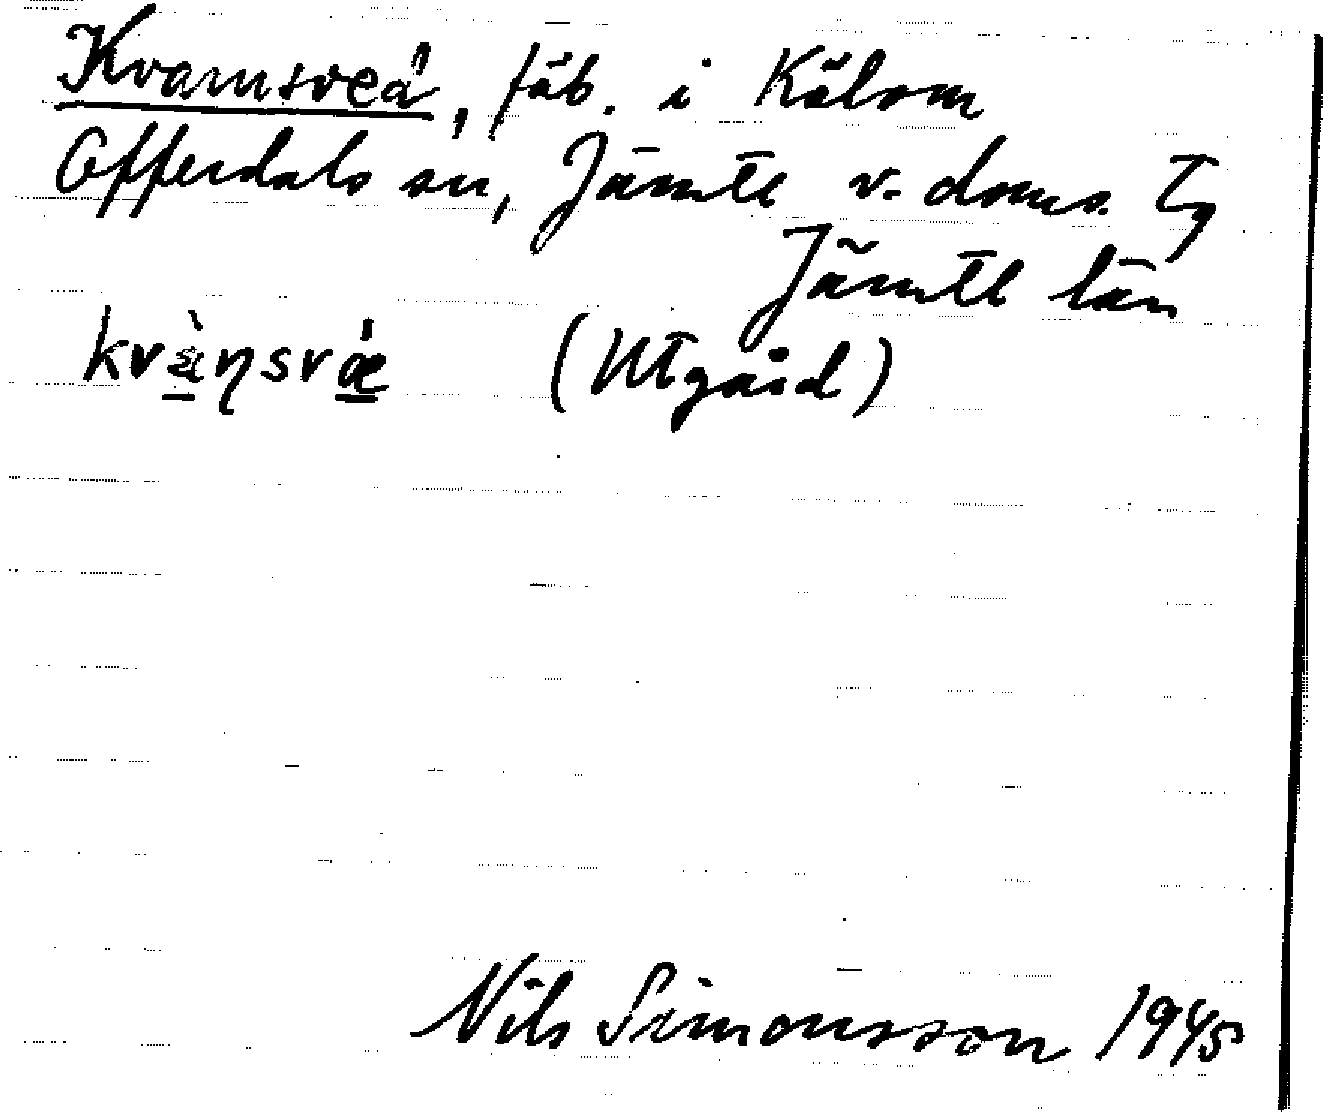 Kvarnsveå, fäb. i Kälom
Offerdals sn, Jämtl v. doms. Tg
Jämtl län
kvæ̀ŋsvǽ (Utgård)
Nils Simonsson 1945